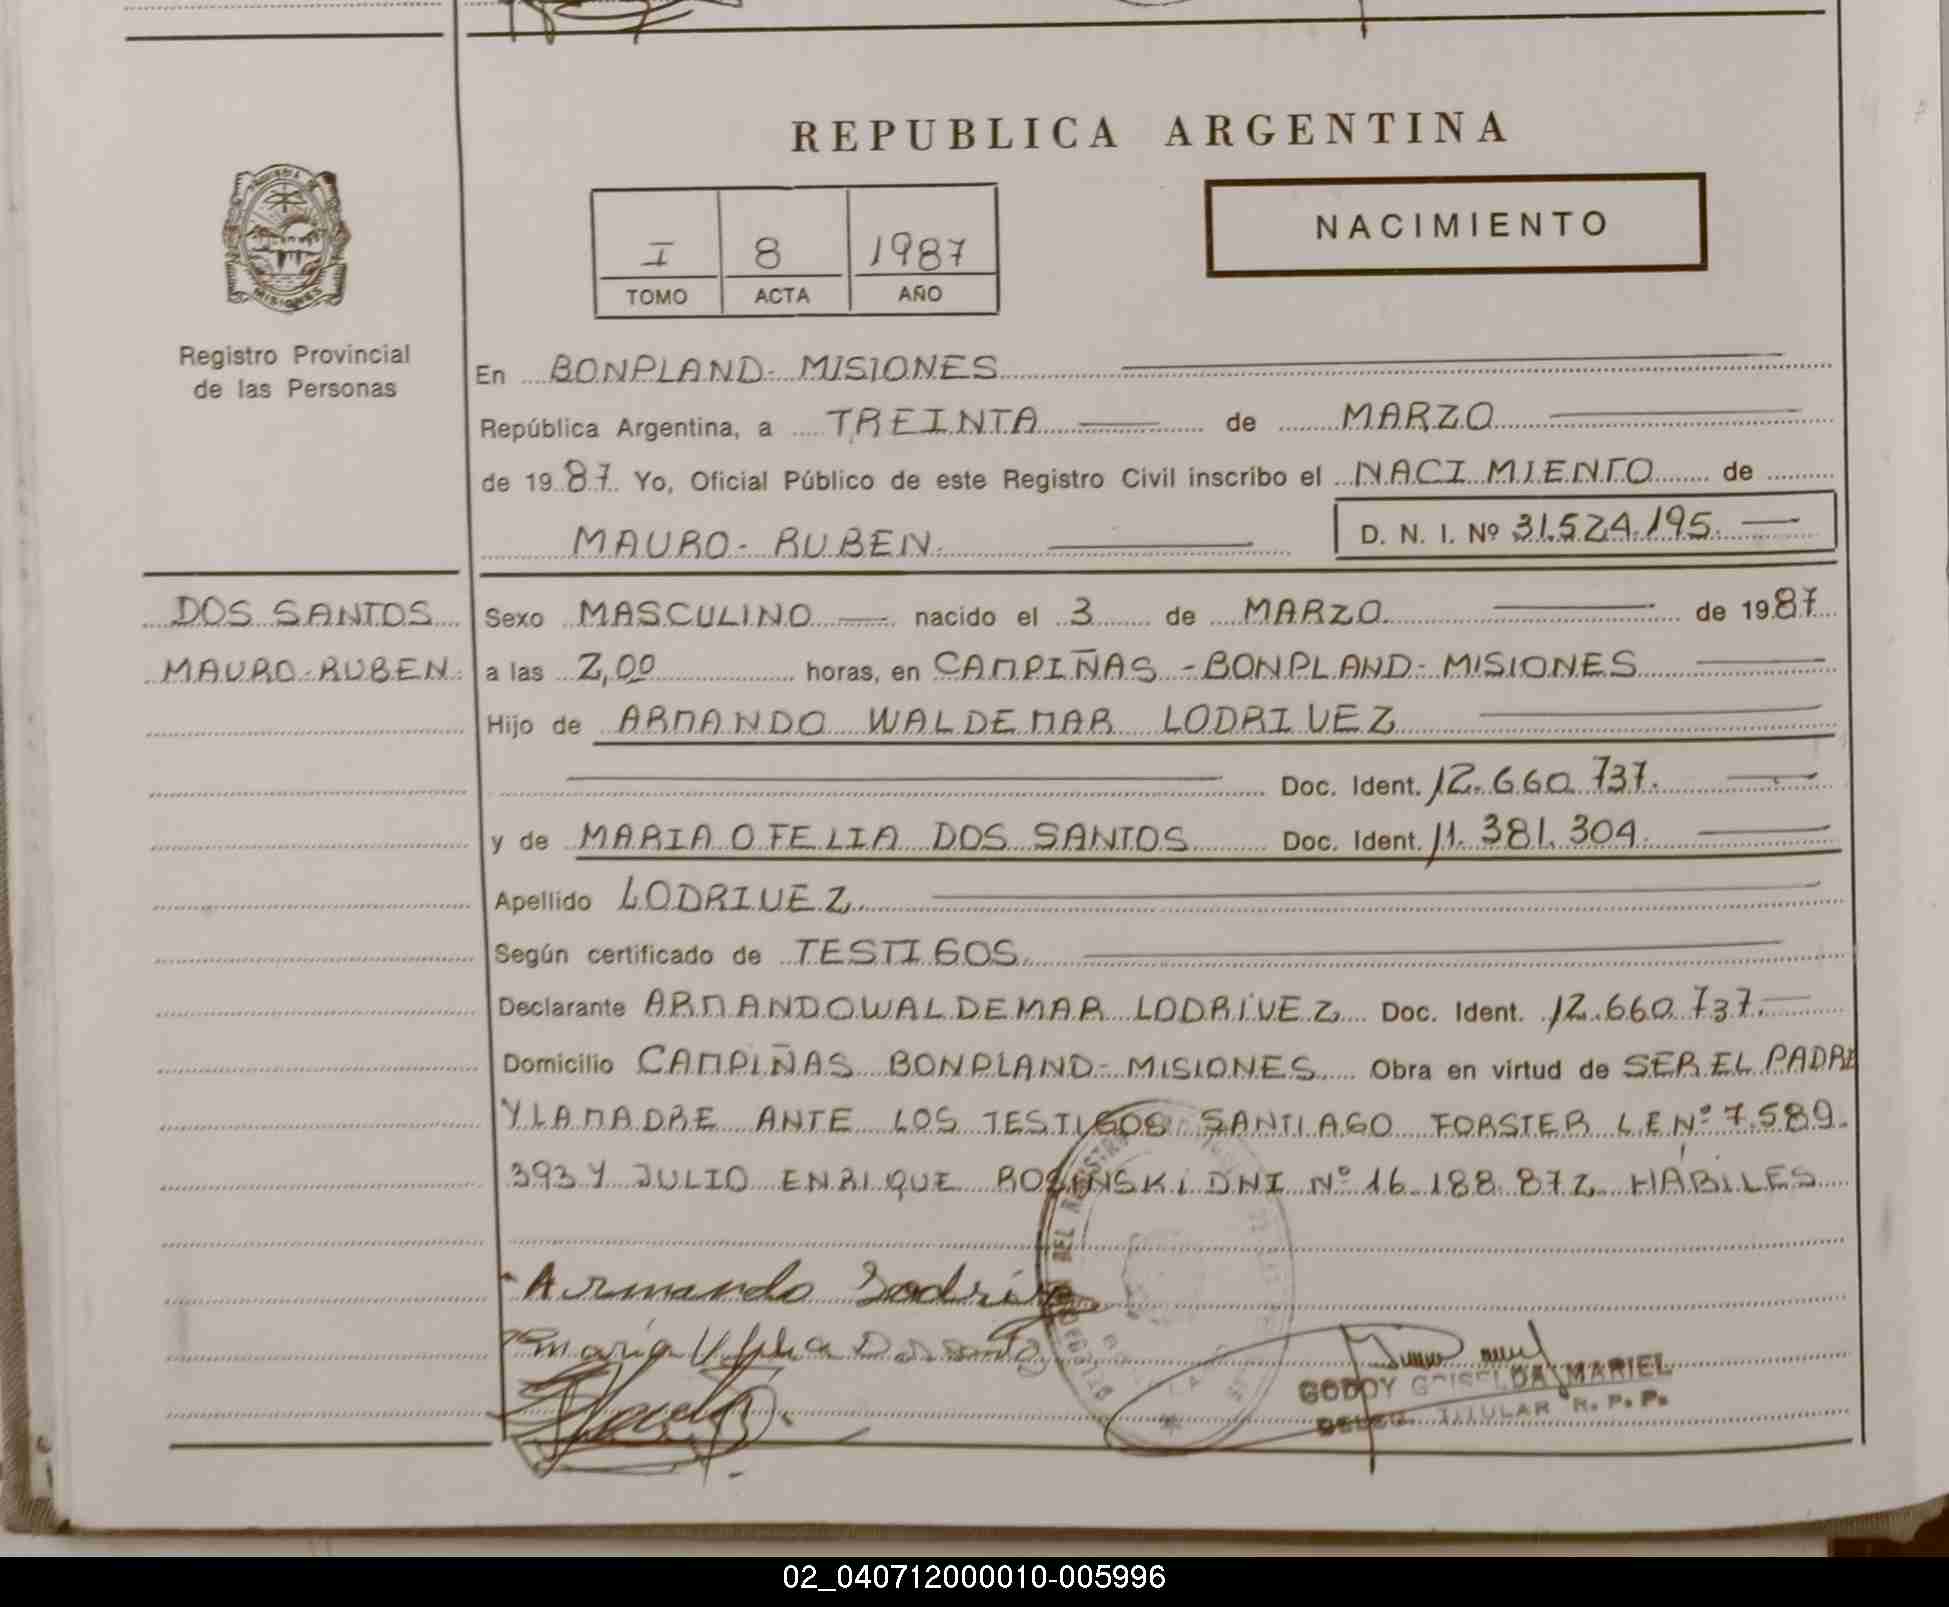 REPUBLICA ARGENTINA
NACIMIENTO
I 8 1987
TOMO ACTA AÑO
PROVINCIA DE
MISIONES
Registro Provincial
de las Personas
En BONPLAND- MISIONES
República Argentina, a TREINTA de MARZO
de 1987 Yo, Oficial Público de este Registro Civil inscribo el NACIMIENTO de
MAURO- RUBEN D. N. I. Nº 31.524.195.
DOS SANTOS
MAURO-RUBEN
Sexo MASCULINO nacido el 3 de MARZO de 1987
a las 2,00 horas, en CAMPIÑAS - BONPLAND- MISIONES
Hijo de ARMANDO WALDEMAR LODRIVEZ
Doc. Ident. 12.660.737.
y de MARIA OFELIA DOS SANTOS Doc. Ident. 11.381.304.
Apellido LODRIVEZ
Según certificado de TESTIGOS
Declarante ARMANDO WALDEMAR LODRIVEZ Doc. Ident. 12.660.737.
Domicilio CAMPIÑAS BONPLAND- MISIONES Obra en virtud de SER EL PADRE
Y LA MADRE ANTE LOS TESTIGOS SANTIAGO FORSTER L.E Nº 7.589.
393 Y JULIO ENRIQUE ROSINSKI DNI Nº 16.188.872 HABILES
Armando
Maria
GODOY GRISELDA MARIEL
DELEG. TITULAR R. P. P.
02_040712000010-005996